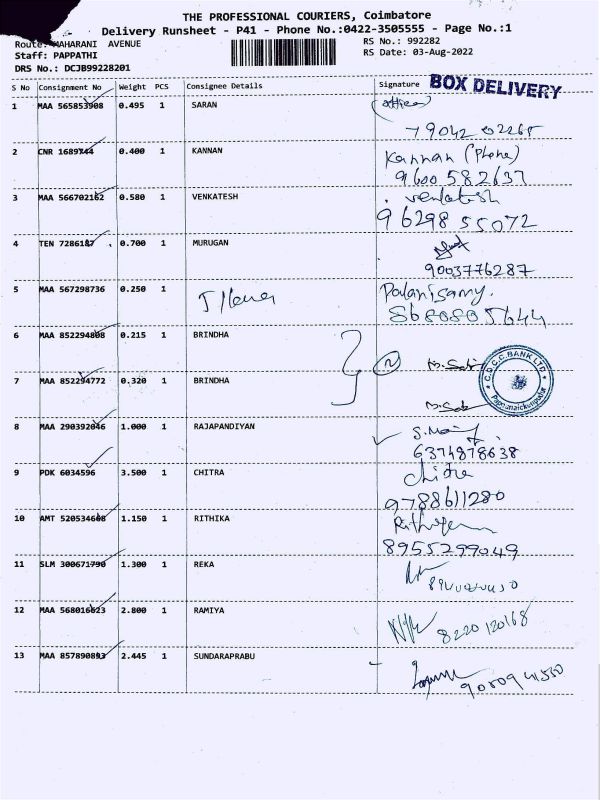 THE PROFESSIONAL COURIERS, Coimbatore
Delivery Runsheet - P41 - Phone No.:0422-3505555 - Page No.:1
Route: MAHARANI AVENUE RS No.: 992282
Staff: PAPPATHI RS Date: 03-Aug-2022
DRS No.: DCJB99228201
S No Consignment No Weight PCS Consignee Details Signature BOX DELIVERY
1 MAA 565853908 0.495 1 SARAN office
79042 02265
2 CNR 1689744 0.400 1 KANNAN Kannan (Phone)
9600 582637
3 MAA 566702162 0.580 1 VENKATESH venkatesh
96298 55072
4 TEN 7286187 0.700 1 MURUGAN
9003776287
5 MAA 567298736 0.250 1 Palanisamy.
8680805644
6 MAA 852294808 0.215 1 BRINDHA
C.G.C.C. BANK LTD
7 MAA 852294772 0.320 1 BRINDHA
8 MAA 290392046 1.000 1 RAJAPANDIYAN
6374878638
9 PDK 6034596 3.500 1 CHITRA Chitra
9788611280
10 AMT 520534608 1.150 1 RITHIKA
8955299049
11 SLM 300671790 1.300 1 REKA
12 MAA 568016623 2.800 1 RAMIYA
8220120168
13 MAA 857890893 2.445 1 SUNDARAPRABU